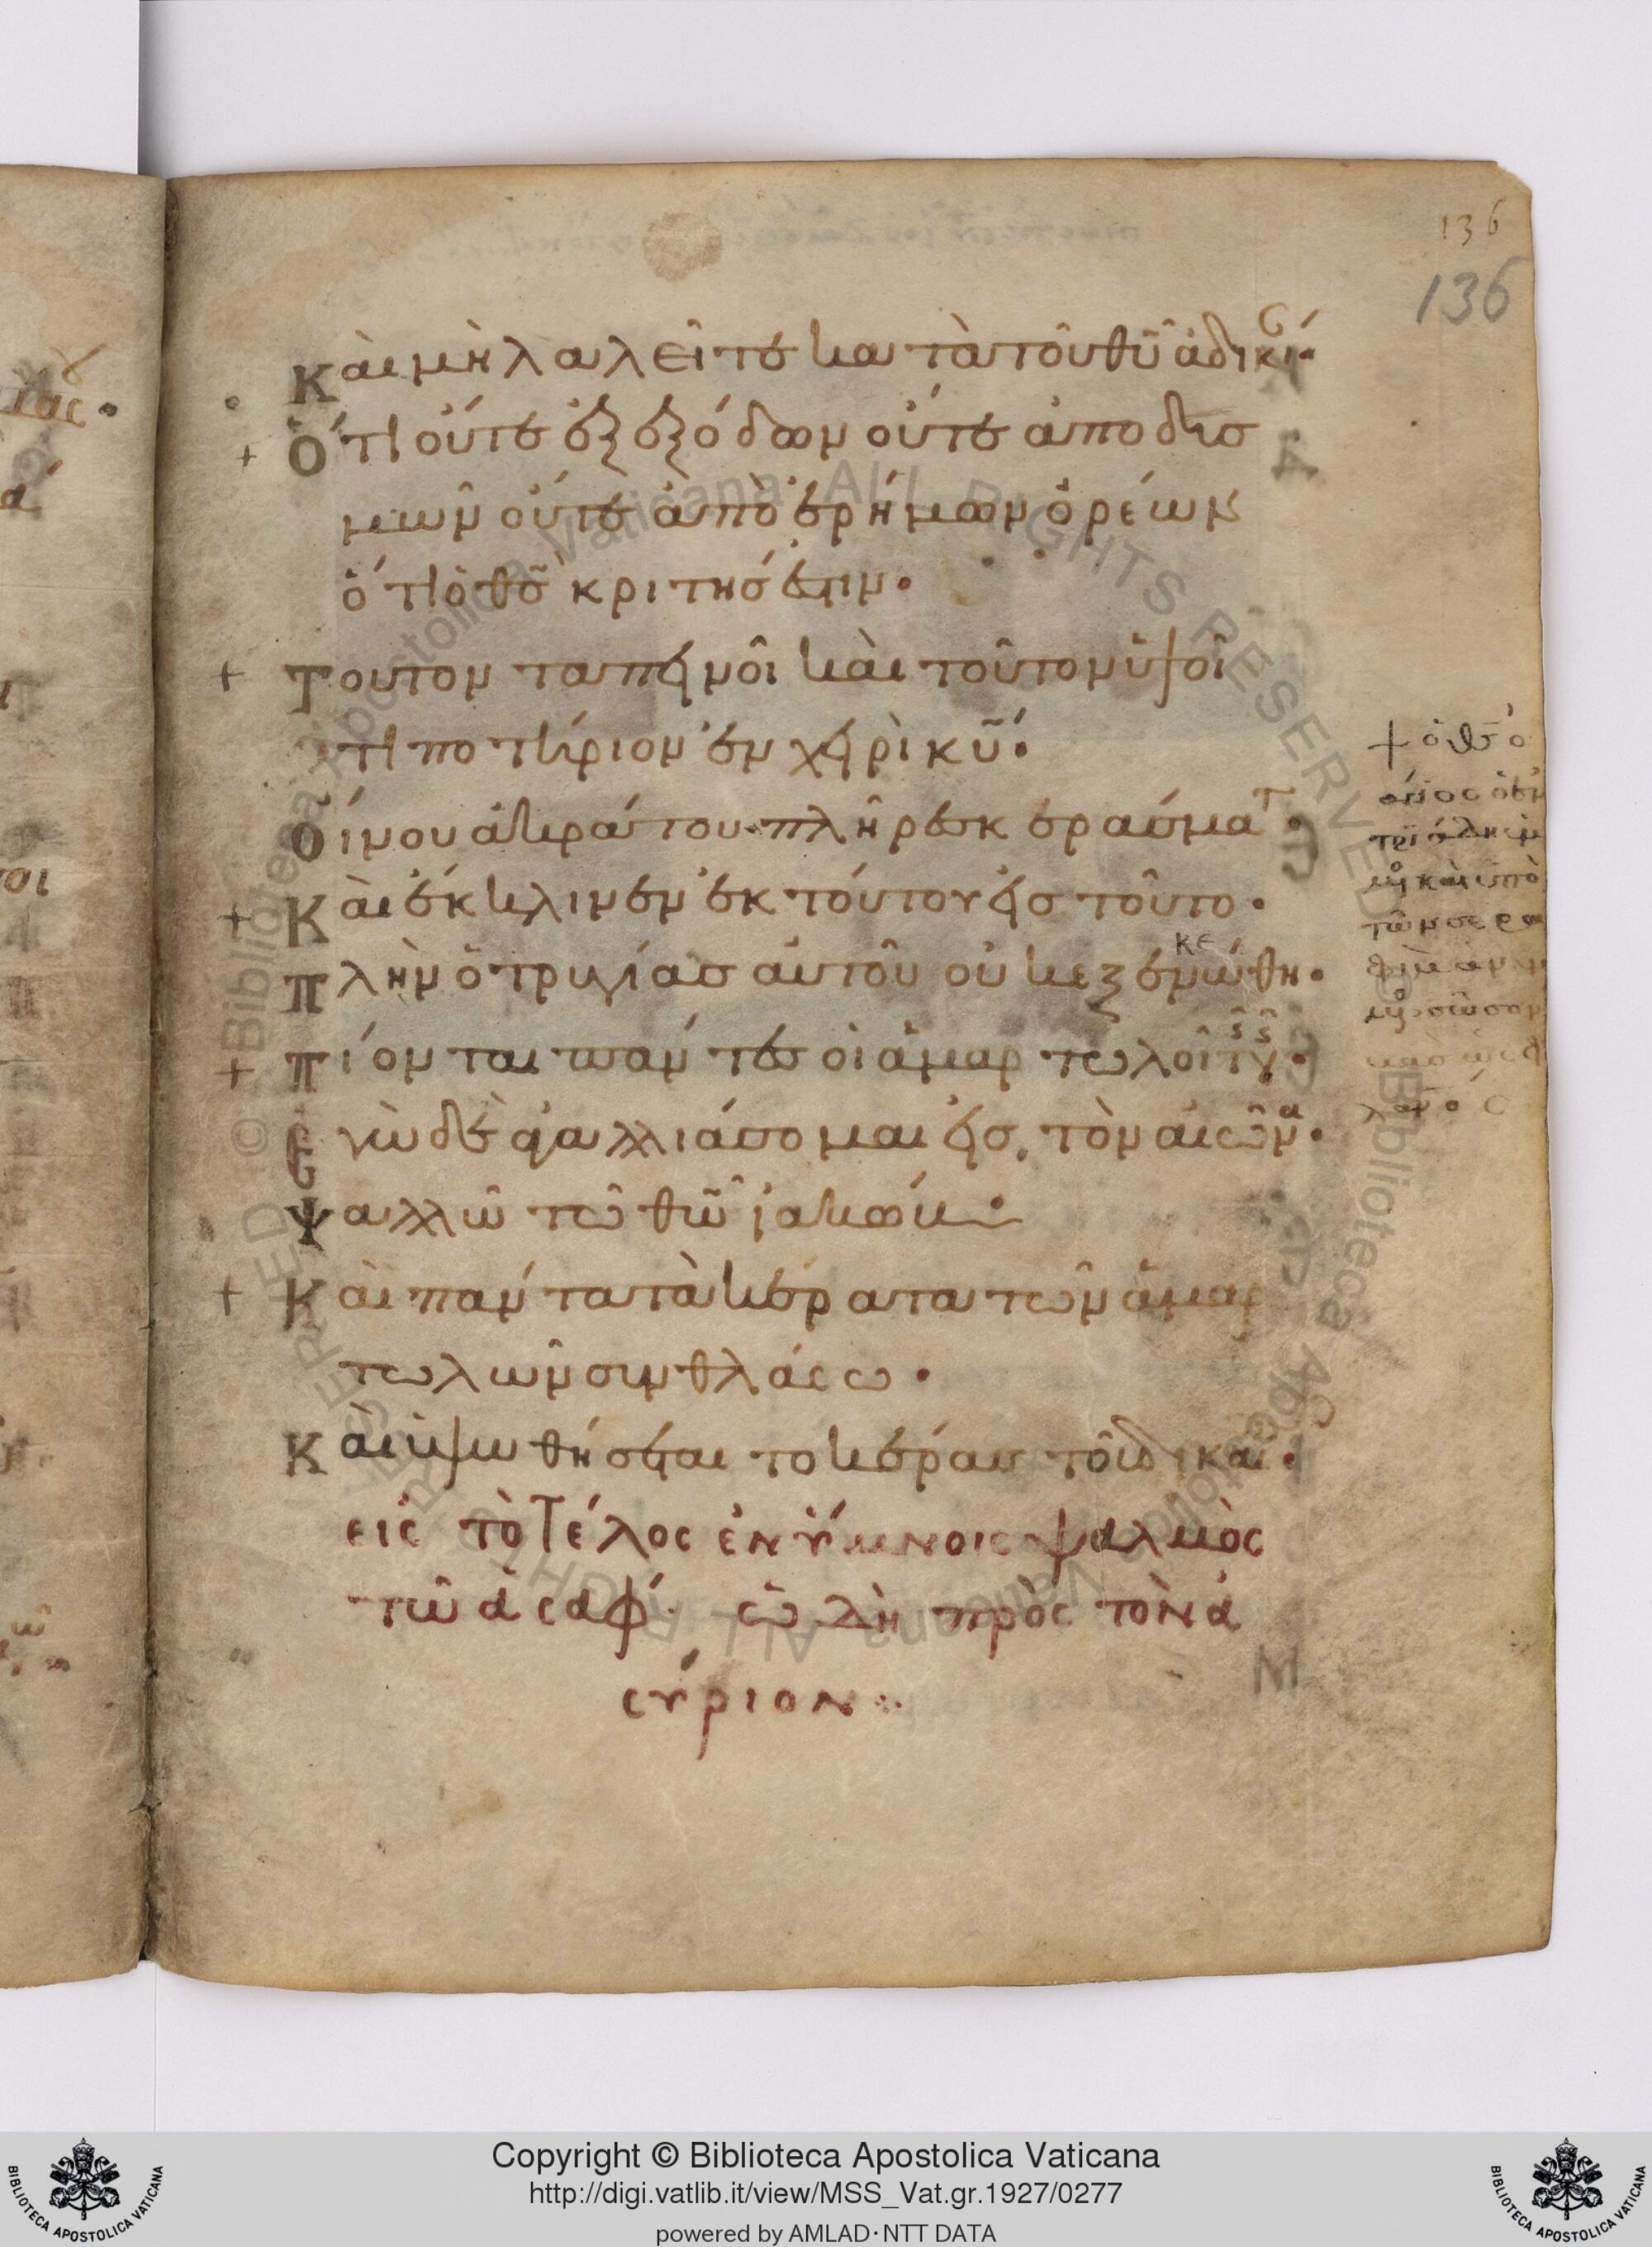 136
136
Καὶ μὴ λαλεῖτε κατὰ τοῦ θῦ ἀδικί
Ὅτι οὔτε ἐξ ἐξόδων οὔτε ἀπο δυσ
μων οὔτε ἀπὸ ἐρήμων ὀρέων
ὅτι ὁ θσ κριτησ ἐστιν·
Τουτον ταπεινοῖ καὶ τοῦτον ὑψοῖ
ὅτι ποτήριον ἐν χειρὶ κῦ·
Οίνου ἀκράτου πλῆρες κεράσματ·
Καὶ ἔκκλινεν ἐκ τούτου εἰσ τοῦτο·
Πλὴν ὁ τρυγίασ αὐτοῦ οὐκ εξεκενώθη·
Πίονται παντες οἱ ἁμαρτωλοὶ τ γ·
Εγὼ δὲ ἀγαλλιάσομαι εἰσ τὸν αἰῶνα·
Ψαλλῶ τῶ θῶ ἰακώκ
Καὶ πάντα τὰ κέρατα τῶν ἁμαρ
τωλῶν συνθλάσω·
Καὶ ὑψωθήσεται το κέρασ τοῦ δικαί·
εις τὸ Τέλος ἐν ὕμνοις ψαλμὸς
τῶ ἀσαφ· ῶδὴ πρὸς τὸν ἀ
σύριον
Copyright © Biblioteca Apostolica Vaticana
http://digi.vatlib.it/view/MSS_Vat.gr.1927/0277
powered by AMLAD·NTT DATA